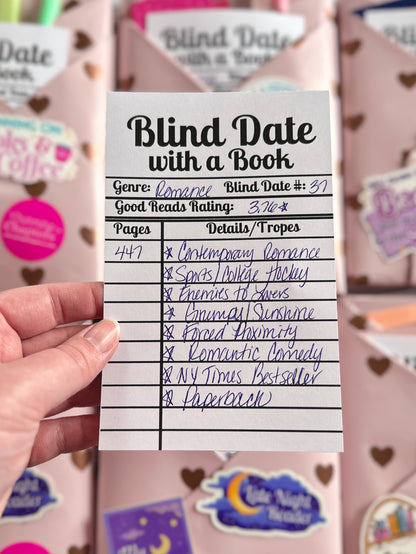 Blind Date
with a Book
Blind Date
with a Book
Genre: Romance Blind Date #: 37
Good Reads Rating: 3.76☆
Pages Details/Tropes
447 ☆ Contemporary Romance
☆ Sports/College Hockey
☆ Enemies to Lovers
☆ Grumpy/Sunshine
☆ Forced Proximity
☆ Romantic Comedy
☆ NY Times Bestseller
☆ Paperback
Late Night
Reader